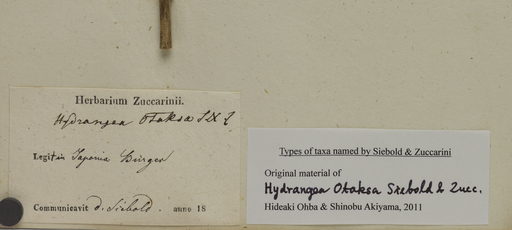 Herbarium Zuccarinii.
Hydrangea Otaksa S & Z.
Legit in Japonia Bürger
Communicavit d. Siebold. anno 18
Types of taxa named by Siebold & Zuccarini
Original material of
Hydrangea Otaksa Siebold & Zucc.
Hideaki Ohba & Shinobu Akiyama, 2011